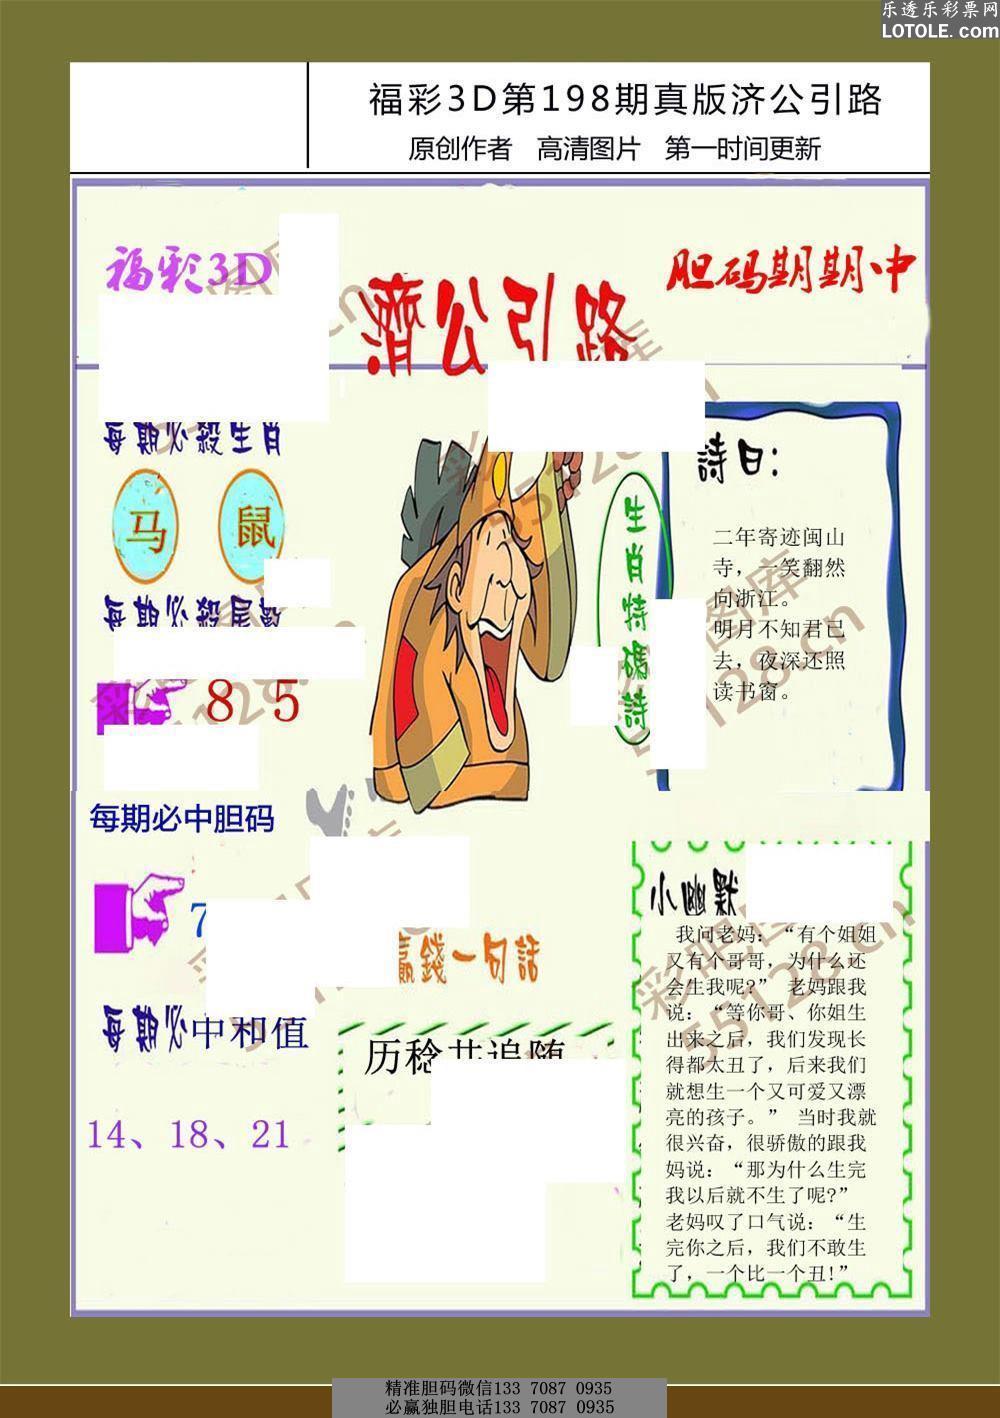 乐透乐彩票网
LOTOLE.com
福彩3D第198期真版济公引路
原创作者 高清图片 第一时间更新
福彩3D
胆码期期中
濟公引路
每期必殺生肖
马 鼠
每期必殺尾數
8 5
每期必中胆码
7
每期必中和值
14、18、21
生肖特碼詩
詩曰:
二年寄迹闽山
寺，一笑翻然
向浙江。
明月不知君已
去，夜深还照
读书窗。
赢錢一句話
历稔共追随
小幽默
我问老妈：“有个姐姐
又有个哥哥，为什么还
会生我呢?” 老妈跟我
说：“等你哥、你姐生
出来之后，我们发现长
得都太丑了，后来我们
就想生一个又可爱又漂
亮的孩子。” 当时我就
很兴奋，很骄傲的跟我
妈说：“那为什么生完
我以后就不生了呢?”
老妈叹了口气说：“生
完你之后，我们不敢生
了，一个比一个丑!”
彩吧图库
55128.cn
精准胆码微信133 7087 0935
必赢独胆电话133 7087 0935